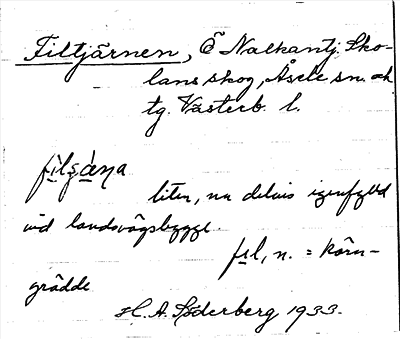 Filtjärnen, Ö Nalkantj. Sko-
lans skog, Åsele sn. och
tg. Västerb. l.
fìlʂæ̀ṇa
liten, nu delvis igenfylld
vid landsvägsbygge.
fɪl, n. = körn-
grädde
H. A. Söderberg 1933.